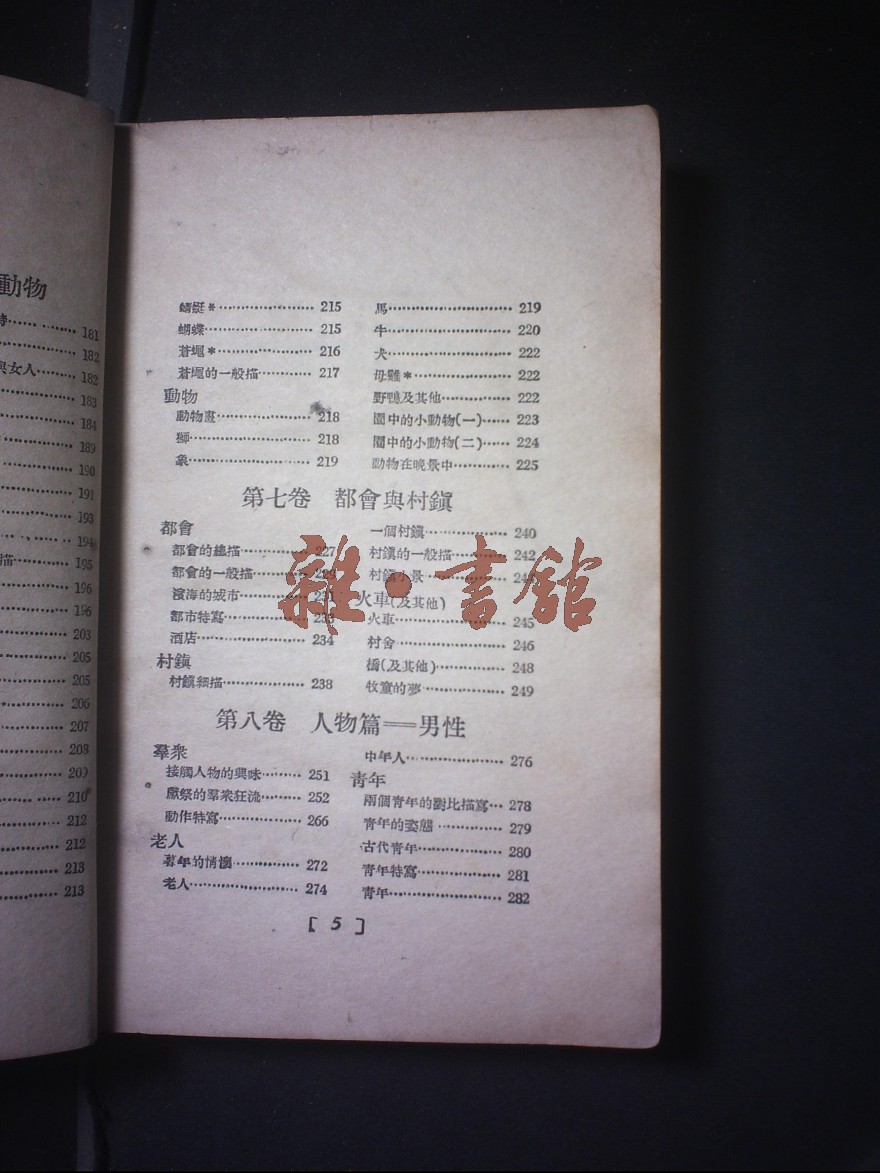 動物
181
182
與女人………182
183
184
189
190
191
193
194
195
196
196
203
205
205
206
207
208
209
210
212
212
213
213
蜻蜓*………………215
蝴蝶………………215
蒼蠅*………………216
蒼蠅的一般描………217
動物
動物畫………………218
獅………………218
象………………219
馬………………219
牛………………220
犬………………222
母雞*………………222
野鴨及其他…………222
園中的小動物(一)……223
園中的小動物(二)……224
動物在晚景中………225
第七卷 都會與村鎭
都會
都會的總描…………227
都會的一般描………229
濱海的城市…………231
都市特寫……………233
酒店………………234
村鎭
村鎭細描……………238
一個村鎭……………240
村鎭的一般描………242
村鎭小景……………
火車(及其他)
火車………………245
村舍………………246
橋(及其他)…………248
牧童的夢……………249
第八卷 人物篇——男性
羣衆
接觸人物的興味………251
獻祭的羣衆狂流………252
動作特寫……………266
老人
暮年的情懷…………272
老人………………274
中年人………………276
靑年
兩個靑年的對比描寫…278
靑年的姿態…………279
古代靑年……………280
靑年特寫……………281
靑年………………282
[5]
雜·書館